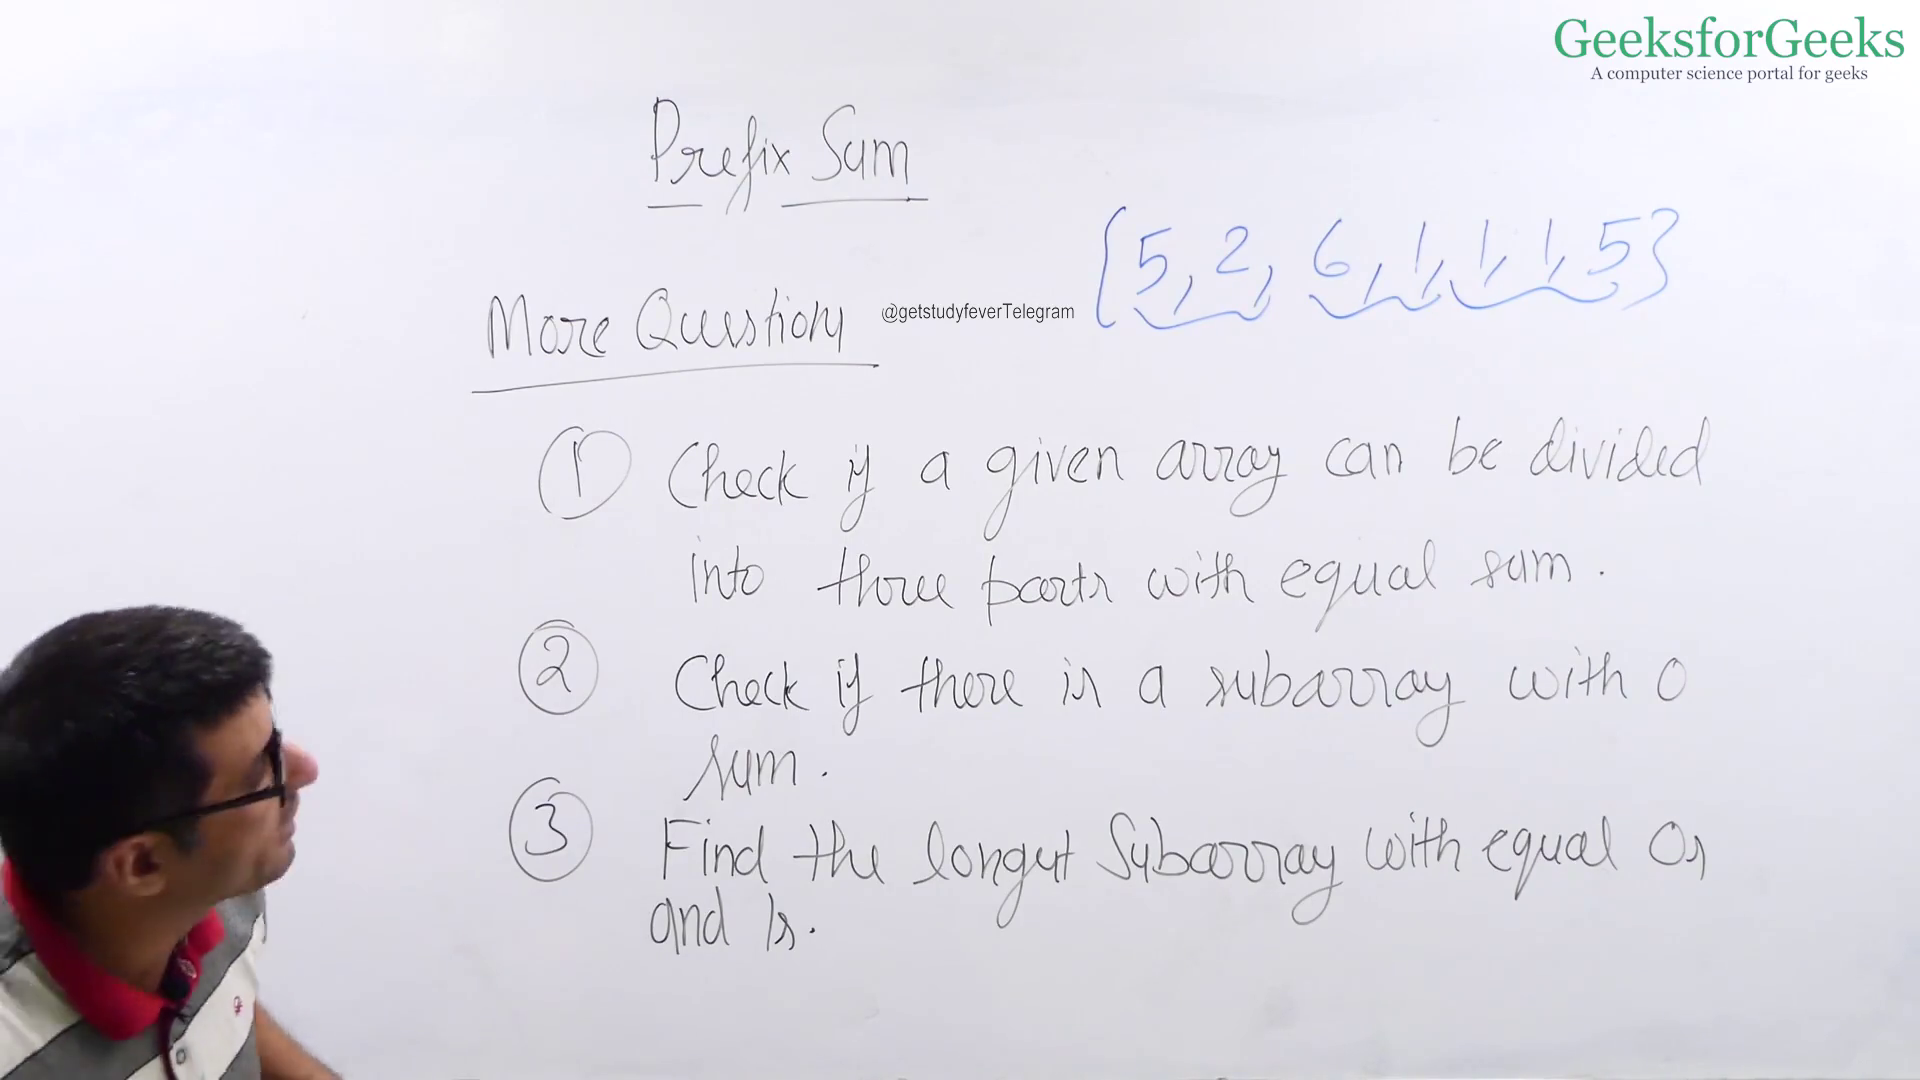 GeeksforGeeks
A computer science portal for geeks
Prefix Sum
{5, 2, 6, 1, 1, 1, 5}
More Questions
@getstudyfeverTelegram
① Check if a given array can be divided
into three parts with equal sum.
② Check if there is a subarray with 0
sum.
③ Find the longest Subarray with equal 0s
and 1s.